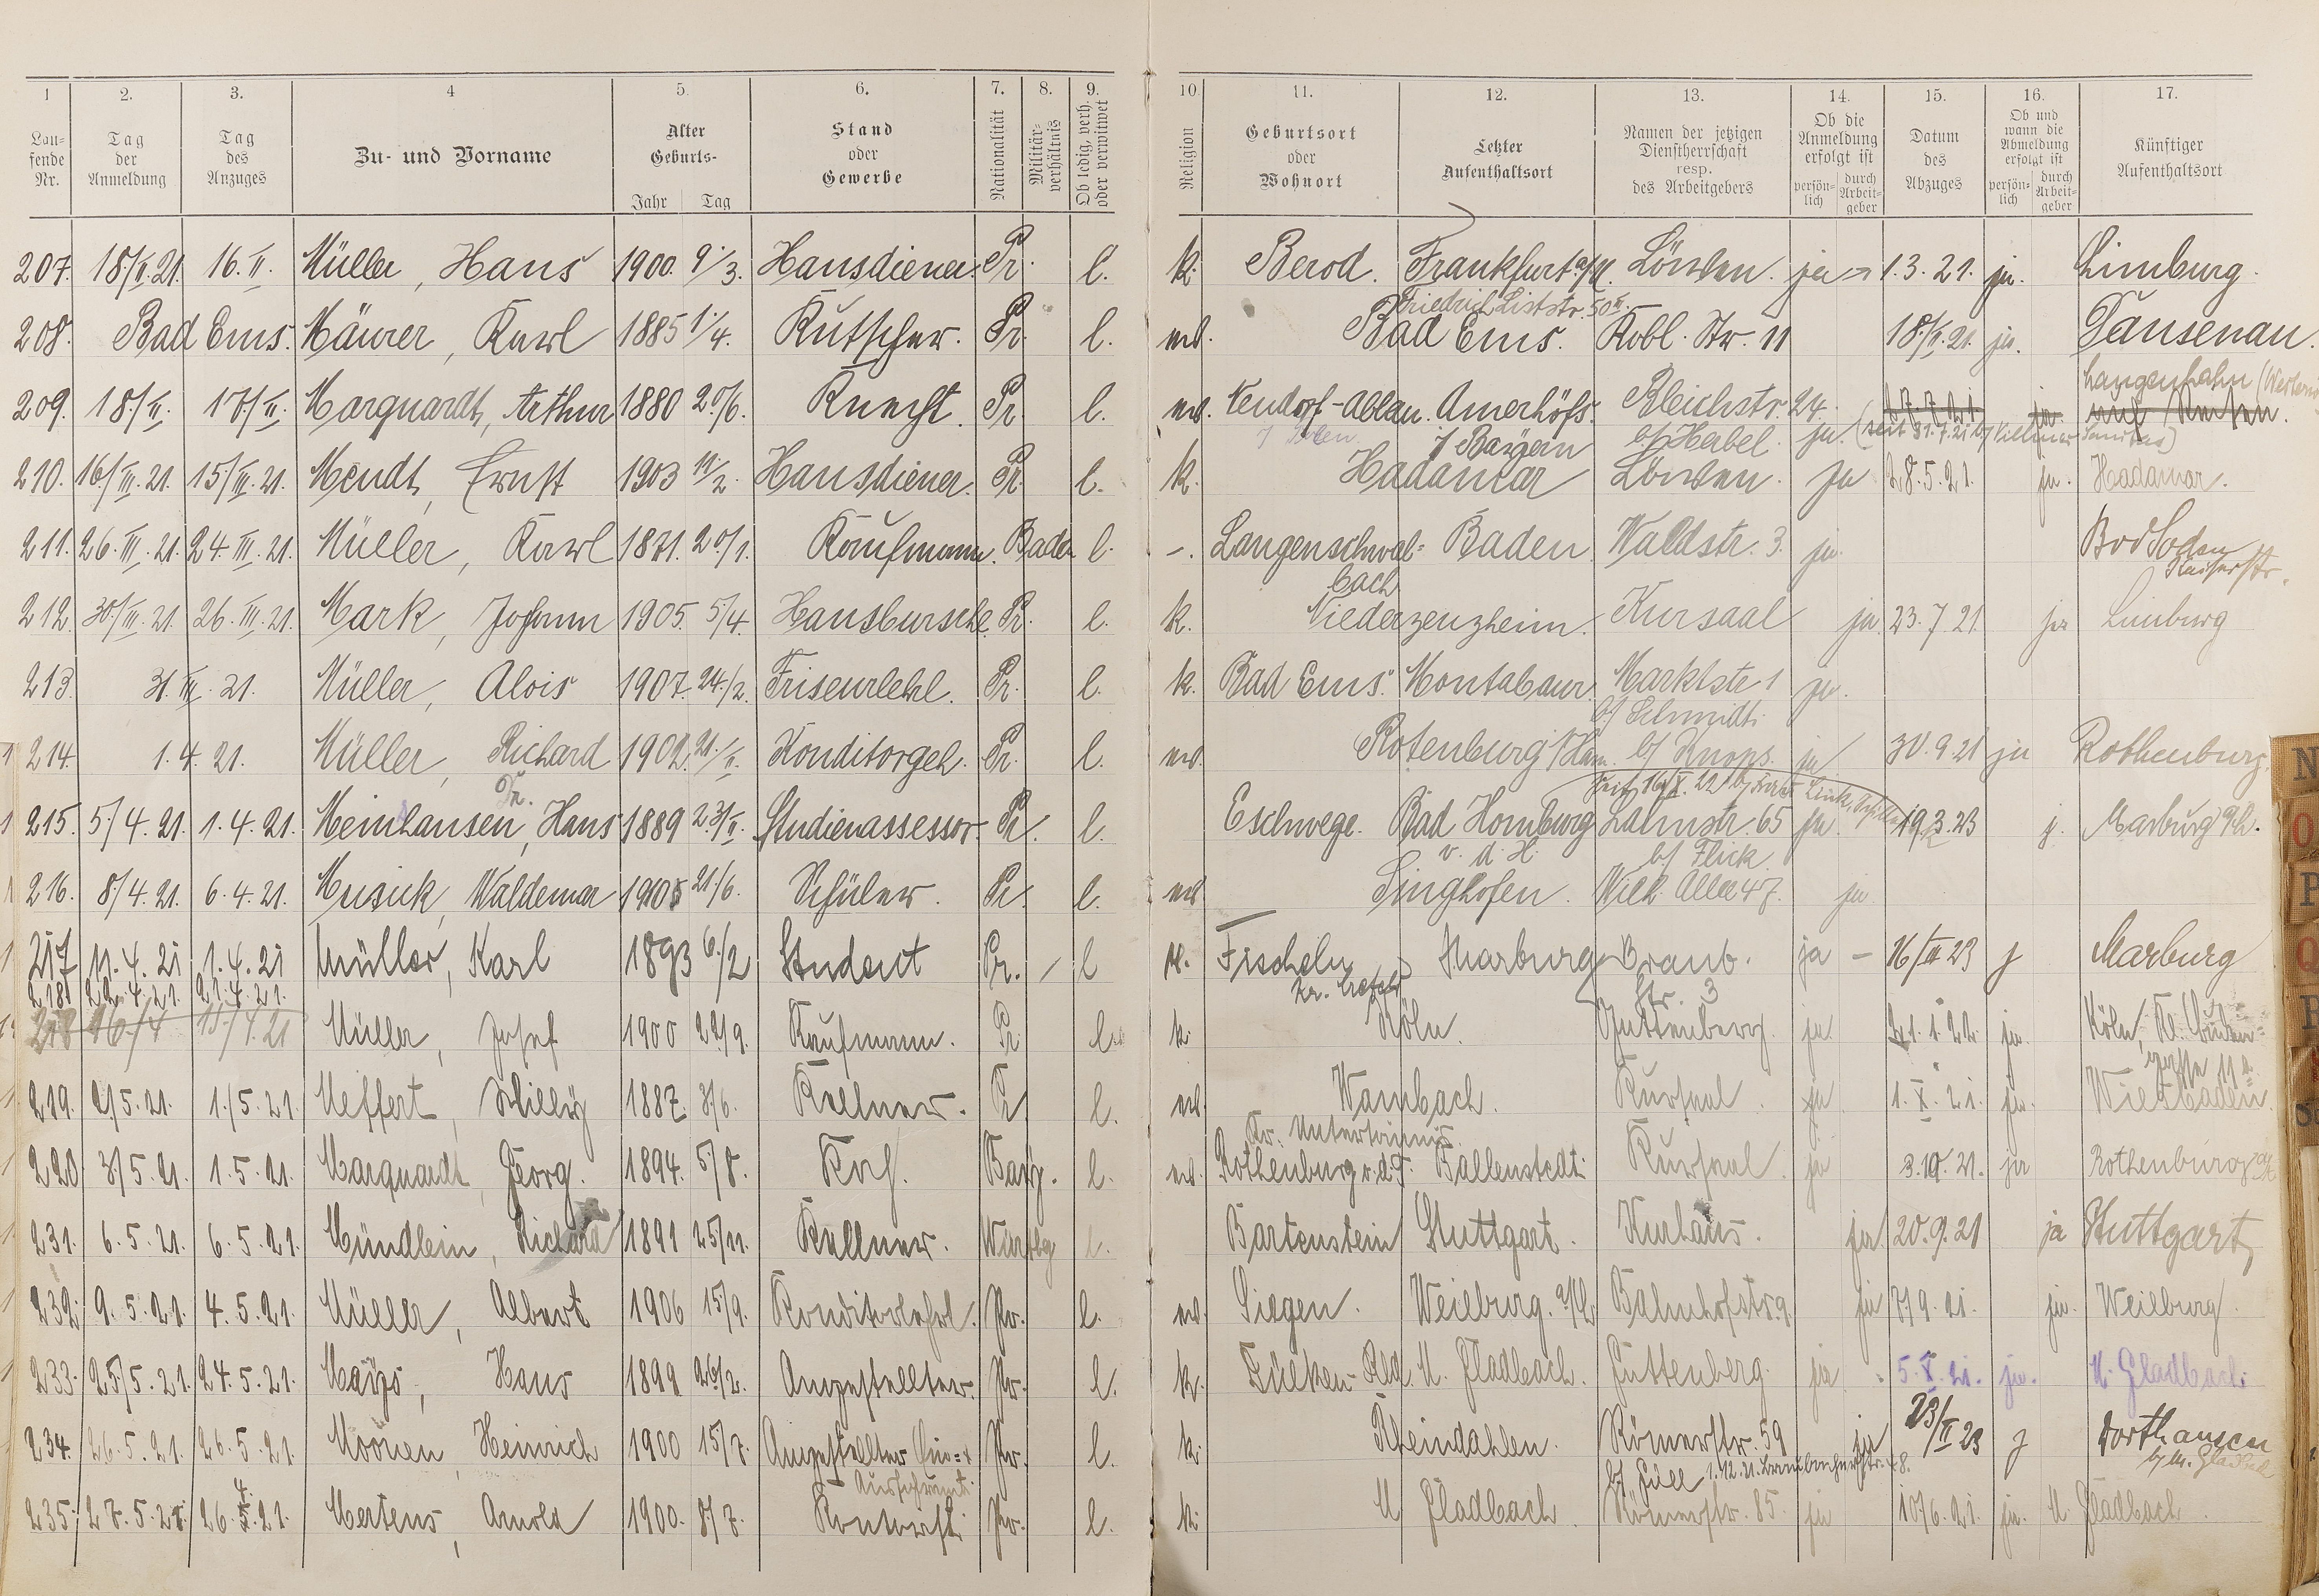 1 2. 3. 4 5. 6. 7. 8. 9. 10. 11. 12. 13. 14. 15. 16. 17.
Lau-
fende
Nr.
Tag
der
Anmeldung
Tag
des
Anzuges
Zu- und Vorname
Alter
Geburts-
Jahr Tag
Stand
oder
Gewerbe
Nationalität
Militär-
verhältnis
Ob ledig, verh.
oder verwitwet
Religion
Geburtsort
oder
Wohnort
Letzter
Aufenthaltsort
Namen der jetzigen
Dienstherrschaft
resp.
des Arbeitgebers
Ob die
Anmeldung
erfolgt ist
persön-
lich
durch
Arbeit-
geber
Datum
des
Abzuges
Ob und
wann die
Abmeldung
erfolgt ist
persön-
lich
durch
Arbeit-
geber
Künftiger
Aufenthaltsort
207. 18./II.21. 16. II. Müller, Hans 1900. 9./3. Hausdiener. Pr. l. k. Berod. Frankfurt a/M. Löwen. ja 1.3.21. ja. Limburg.
Friedrich Liststr. 50
208. Bad Ems. Mäurer, Karl 1885 1./4. Kutscher. Pr. l. Bad Ems. Kobl. Str. 11 18./II.21. ja. Dausenau.
Langenhahn
209. 18./II. 17./II. Marquardt, Arthur 1880 20/6. Knecht. Pr. l. Amerhöfs. Bleichstr. 24. 27.7.21. ja.
/ Bayern b/ Habel. ja. (seit 31.7.21 b/
210. 16./III.21. 15./III.21. Mendt, Ernst 1903 11/2. Hausdiener. Pr. l. k. Hadamar Löwen. ja 28.5.21. ja. Hadamar.
211. 26.III.21. 24.III.21. Müller, Karl 1871. 20./1. Kaufmann. Baden l. -. Langenschwal= Baden Waldstr. 3. ja. Bad Soden
bach Kaiserstr.
212. 30./III.21. 26.III.21. Mark, Johann 1905. 5./4. Hausbursche. Pr. l. k. Niederzeuzheim. Kursaal ja. 23.7.21. ja Limburg
213. 31.III.21. Müller, Alois 1907. 24./2. Friseurlehl. Pr. l. k. Bad Ems. Montabaur Marktstr 1 ja.
b/ Schmidt.
214. 1.4.21. Müller, Richard 1902. 21./II. Konditorgeh. Pr. l. Rotenburg /Han. b/ Knops. ja 30.9.21 ja Rothenburg.
Dr.
215. 5./4.21. 1.4.21. Meinhausen, Hans 1889 23/II. Studienassessor. Pr. l. Eschwege. Bad Homburg Lahnstr. 65 ja. 19.3.23 j. Marburg a/L.
v. d. H. b/ Flick
216. 8/4.21. 6.4.21. Musick, Waldemar 1905 21/6. Schüler. Pr. l. Singhofen. Wilh. Allee 47. ja
217 11.4.21 1.4.21 Müller, Karl 1893 6./2 Student Pr. / l k. Fischeln Marburg Braub. ja - 16/III 23 j Marburg
Kr. Crefeld Str. 3
218 22.4.21. 21.4.21.
218 16./4 15./4.21 Müller, Josef 1900 22/9. Kaufmann. Pr. l. k. Köln. Guttenberg. ja. 21.1.22. ja. Köln,
219. 2/5.21. 1./5.21. Meffert, Willy 1887. 3/6. Kellner. Pr. l. Wambach. Kursaal. ja 1.X.21. ja. Wiesbaden.
Kr. Untertaunus.
220 3/5.21. 1.5.21. Marquardt, Georg. 1894. 5/8. Koch. Bay. l. Rothenburg o.d.T. Ballenstedt. Kursaal. ja 3.10.21. ja Rothenburg
231. 6.5.21. 6.5.21. Mündlein, Richard 1891 25/11. Kellner. Württbg l. Bartenstein Stuttgart. Kurhaus. ja 20.9.21 ja Stuttgart
232. 9.5.21. 4.5.21. Müller, Albert 1906 15/9. Konditorlehrl. Pr. l. Siegen. Weilburg. a/L. Bahnhofstr 9. ja 7/9.21. ja. Weilburg.
233. 25/5.21. 24.5.21. Mays, Hans 1899 26/2. Angestellter. Pr. l. k. M. Gladbach. Guttenberg. ja 5.X.21. ja. M. Gladbach.
234. 26.5.21. 26.5.21. Mooren, Heinrich 1900 15/7. Angestellter Ein=+ Pr. l. k. Rheindahlen. Römerstr. 59 ja 23/II 23 j Dorthausen
Ausfuhramt. b/ Füll 1.12.21. 48. b/ M. Gladbach
235. 27.5.21. 26.4.21. Mertens, Arnold 1900. 8/7. Kontorist. Pr. l. k. M Gladbach. Römerstr. 85. ja 10/6.21. ja. M. Gladbach.
N
O
P
Q